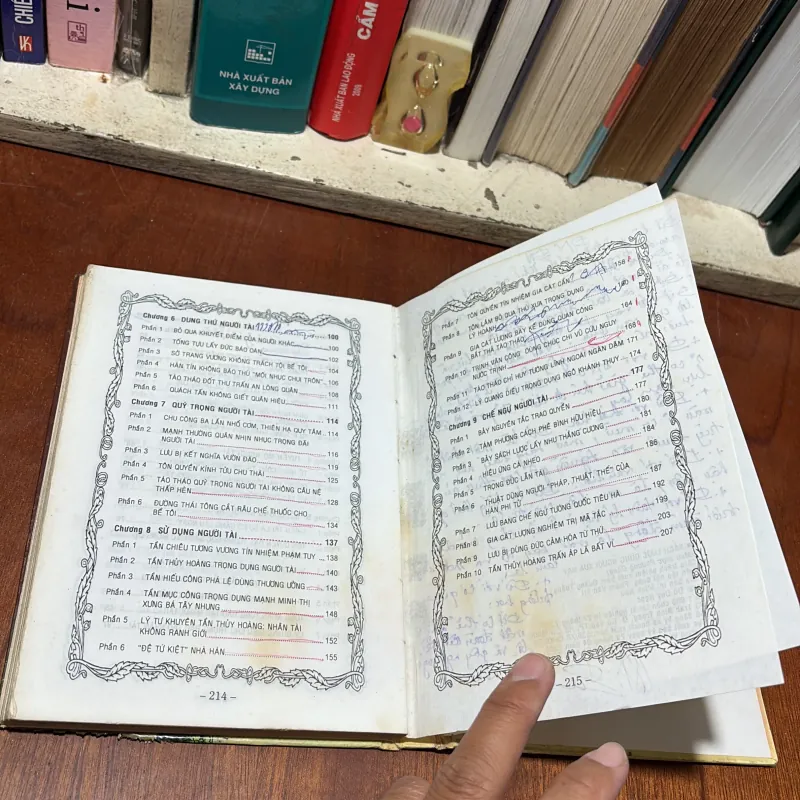 CHIẾ
i
NHÀ XUẤT BẢN
XÂY DỰNG
CẨM
NHÀ XUẤT BẢN LAO ĐỘNG
2009
Chương 6 DUNG THỨ NGƯỜI TÀI 100
Phần 1 BỎ QUA KHUYẾT ĐIỂM CỦA NGƯỜI KHÁC 100
Phần 2 TỐNG TỰU LẤY ĐỨC BÁO OÁN 102
Phần 3 SỞ TRANG VƯƠNG KHÔNG TRÁCH TÔI BỀ TÔI 104
Phần 4 HÀN TÍN KHÔNG BÁO THÙ "MỐI NHỤC CHUI TRÔN" 106
Phần 5 TÀO THÁO ĐỐT THƯ TRẤN AN LÒNG QUÂN 108
Phần 6 QUÁCH TẤN KHÔNG GIẾT QUÂN HIỆU 111
Chương 7 QUÝ TRỌNG NGƯỜI TÀI 114
Phần 1 CHU CÔNG BA LẦN NHỔ CƠM, THIÊN HẠ QUY TÂM 114
Phần 2 MẠNH THƯỜNG QUÂN NHỊN NHỤC TRỌNG ĐÃI
NGƯỜI TÀI 116
Phần 3 LƯU BỊ KẾT NGHĨA VƯỜN ĐÀO 119
Phần 4 TÔN QUYỀN KÍNH TỬU CHU THÁI 125
Phần 5 TÀO THÁO QUÝ TRỌNG NGƯỜI TÀI KHÔNG CÂU NỆ
THẤP HÈN 128
Phần 6 ĐƯỜNG THÁI TÔNG CẮT RÂU CHẾ THUỐC CHO
BỀ TÔI 134
Chương 8 SỬ DỤNG NGƯỜI TÀI 137
Phần 1 TẤN CHIÊU TƯƠNG VƯƠNG TÍN NHIỆM PHẠM TUY 138
Phần 2 TẦN THỦY HOÀNG TRỌNG DỤNG NGƯỜI TÀI 140
Phần 3 TẦN HIẾU CÔNG PHÁ LỆ DÙNG THƯƠNG ƯỞNG 143
Phần 4 TẦN MỤC CÔNG TRỌNG DỤNG MẠNH MINH THỊ
XƯNG BÁ TÂY NHUNG 148
Phần 5 LÝ TƯ KHUYÊN TẦN THỦY HOÀNG: NHÂN TÀI
KHÔNG RANH GIỚI 152
Phần 6 "ĐỆ TỨ KIỆT" NHÀ HÁN 155
– 214 –
Phần 7 TÔN QUYỀN TÍN NHIỆM GIA CÁT CẨN 158
Phần 8 TÔN LÂM BỎ QUA THÙ XƯA TRỌNG DỤNG
LÝ HOÀNH 160
Phần 9 GIA CÁT LƯỢNG BÀY KẾ DÙNG QUAN CÔNG
BẮT THẢ TÀO THÁO 164
Phần 10 TRỊNH VĂN CÔNG DÙNG CHÚC CHI VŨ CỨU NGUY
NƯỚC TRỊNH 168
Phần 11 TÀO THÁO CHỈ HUY TƯỚNG LĨNH NGOÀI NGÀN DẶM 171
Phần 12 LÝ QUANG DIỆU TRỌNG DỤNG NGÔ KHÁNH THỤY 174
Chương 9 CHẾ NGỰ NGƯỜI TÀI 177
Phần 1 BẢY NGUYÊN TẮC TRAO QUYỀN 177
Phần 2 TÁM PHƯƠNG CÁCH PHÊ BÌNH HỮU HIỆU 180
Phần 3 BẢY SÁCH LƯỢC LẤY NHU THẮNG CƯƠNG 181
Phần 4 HIỆU ỨNG CÁ NHEO 184
Phần 5 TRỌNG ĐỨC LẪN TÀI 186
Phần 6 THUẬT DÙNG NGƯỜI "PHÁP, THUẬT, THẾ" CỦA
HÀN PHI TỬ 187
Phần 7 LƯU BANG CHẾ NGỰ TƯỚNG QUỐC TIÊU HÀ 192
Phần 8 GIA CÁT LƯỢNG NGHIÊM TRỊ MÃ TẮC 199
Phần 9 LƯU BỊ DÙNG ĐỨC CẢM HÓA TỪ THỨ 203
Phần 10 TẦN THỦY HOÀNG TRẤN ÁP LÀ BẤT VI 207
– 215 –